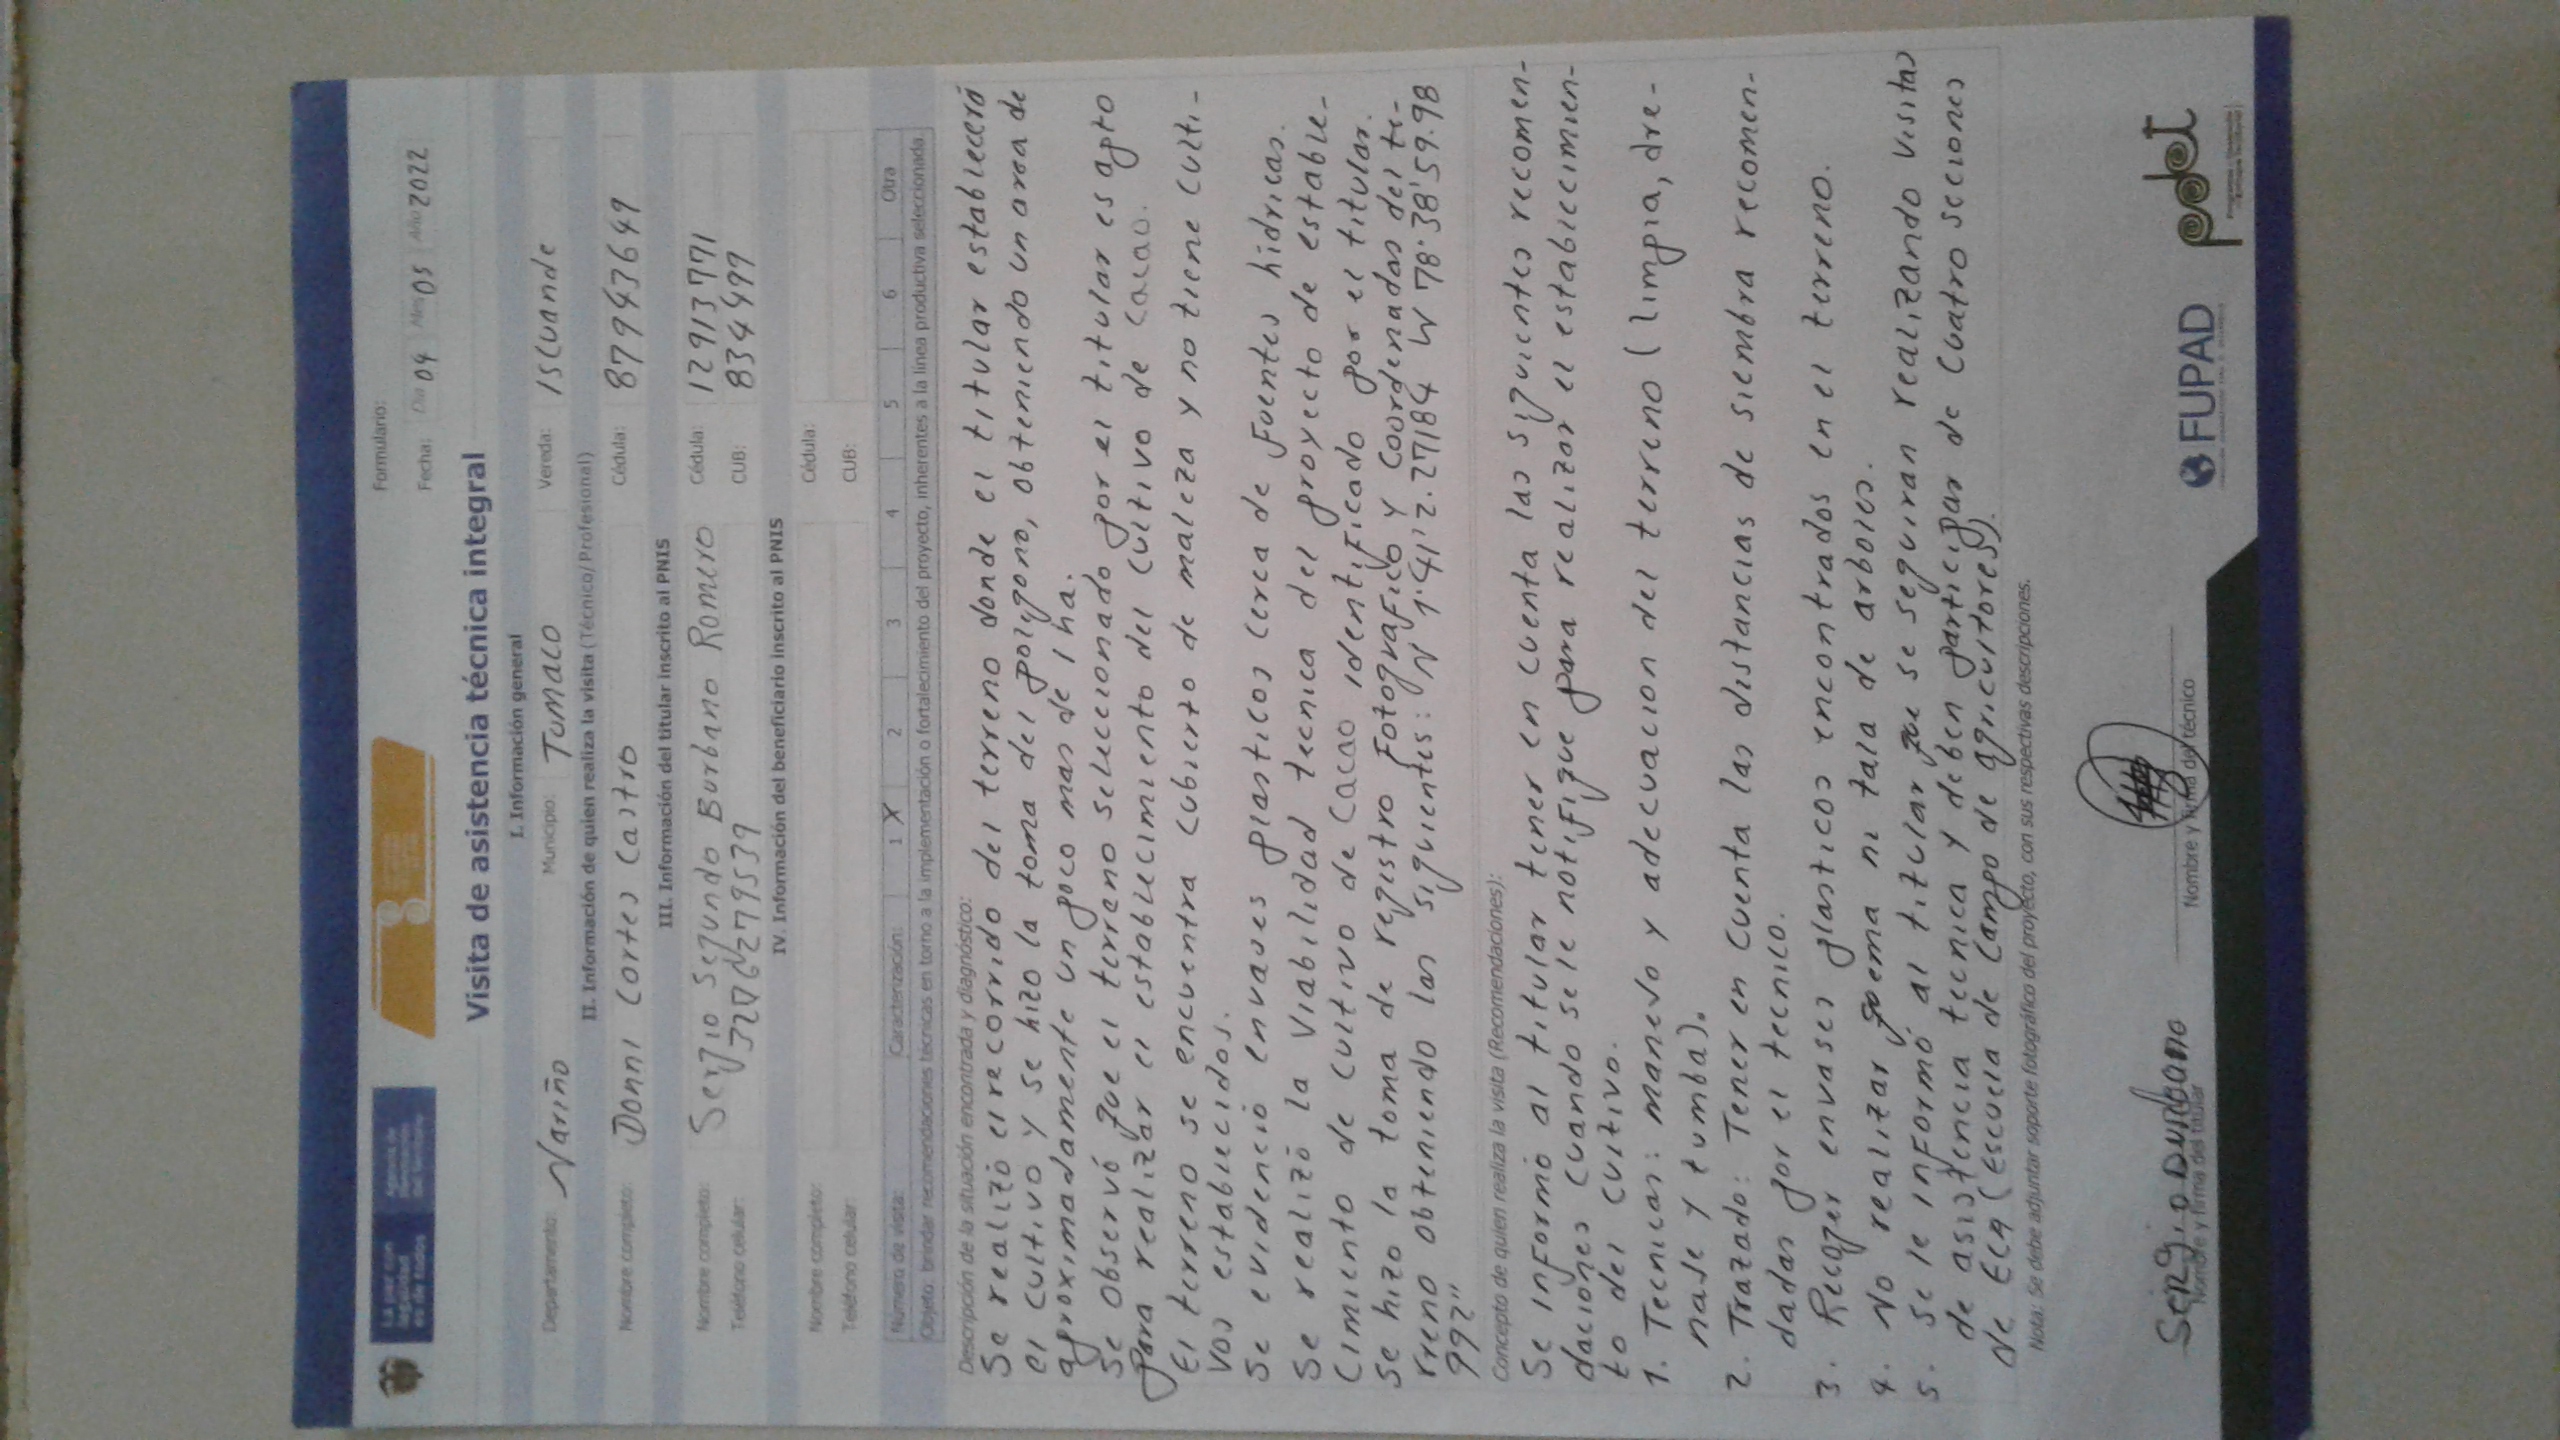 La paz con
legalidad
es de todos
Agencia de
Renovación
del Territorio
Formulario:
Fecha: Día 04 Mes 05 Año 2022
Visita de asistencia técnica integral
I. Información general
Departamento: Nariño Municipio: Tumaco Vereda: Iscuande
II. Información de quien realiza la visita (Técnico/ Profesional)
Nombre completo: Donni Cortes Castro Cédula: 8794 3649
III. Información del titular inscrito al PNIS
Nombre completo: Sergio Segundo Burbano Romero Cédula: 12913771
Teléfono celular: 3206279539 CUB: 834499
IV. Información del beneficiario inscrito al PNIS
Nombre completo: Cédula:
Teléfono celular: CUB:
Número de visita: Caracterización: 1 X 2 3 4 5 6 Otra
Objeto: brindar recomendaciones técnicas en torno a la implementación o fortalecimiento del proyecto, inherentes a la línea productiva seleccionada
Descripción de la situación encontrada y diagnóstico:
Se realizó el recorrido del terreno donde el titular establecerá
el cultivo y se hizo la toma del polygono, obteniendo un area de
aproximadamente un poco mas de 1 ha.
Se observó que el terreno seleccionado por el titular es apto
para realizar el establecimiento del cultivo de Cacao.
El terreno se encuentra cubierto de maleza y no tiene culti-
vos establecidos.
Se evidenció envaves plasticos cerca de Fuentes hidricas.
Se realizó la Viabilidad tecnica del proyecto de estable-
Cimiento de cultivo de Cacao identificado por el titular.
Se hizo la toma de registro Fotografico y Coordenadas del te-
rreno obteniendo las siguientes: N 1°41'2.27184 W 78°38'59.98
992"
Concepto de quien realiza la visita (Recomendaciones):
Se informó al titular tener en cuenta las siguientes recomen-
daciones cuando se le notifique para realizar el establecimien-
to del cultivo.
1. Tecnicas: manejo y adecuacion del terreno (limpia, dre-
naje y tumba).
2. Trazado: Tener en cuenta las distancias de siembra recomen-
dadas por el tecnico.
3. Recoger envases plasticos encontrados en el terreno.
4. No realizar quema ni tala de arboles.
5. Se le informó al titular que se seguiran realizando visitas
de asistencia tecnica y deben participar de Cuatro seciones
de ECA (Escuela de Campo de agricultores).
Nota: Se debe adjuntar soporte fotográfico del proyecto, con sus respectivas descripciones.
Sergio Burbano
Nombre y firma del titular Nombre y firma del técnico
FUPAD pdet